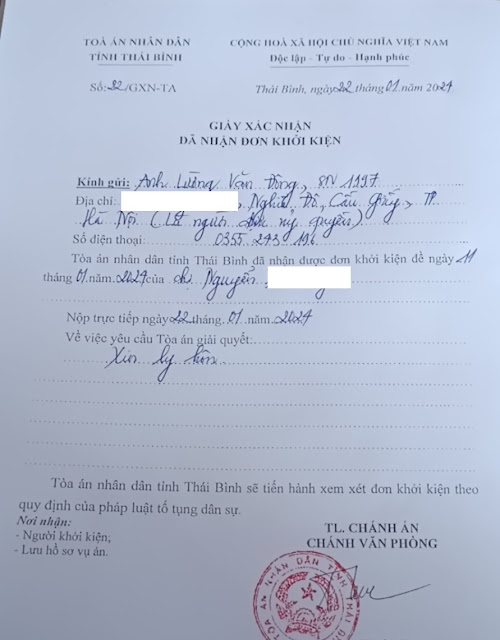 TOÀ ÁN NHÂN DÂN
TỈNH THÁI BÌNH
CỘNG HOÀ XÃ HỘI CHỦ NGHĨA VIỆT NAM
Độc lập - Tự do - Hạnh phúc
Số: 22/GXN-TA
Thái Bình, ngày 22 tháng 01 năm 2024
GIẤY XÁC NHẬN
ĐÃ NHẬN ĐƠN KHỞI KIỆN
Kính gửi: Anh Lường Văn Đông, SN 1997
Địa chỉ: , Nghĩa Đô, Cầu Giấy, TP.
Hà Nội (Là người được uỷ quyền).
Số điện thoại: 0355 293 196
Tòa án nhân dân tỉnh Thái Bình đã nhận được đơn khởi kiện đề ngày 11
tháng 01 năm 2024 của chị Nguyễn
Nộp trực tiếp ngày 22 tháng 01 năm 2024
Về việc yêu cầu Tòa án giải quyết:
Xin ly hôn
Tòa án nhân dân tỉnh Thái Bình sẽ tiến hành xem xét đơn khởi kiện theo
quy định của pháp luật tố tụng dân sự.
Nơi nhận:
- Người khởi kiện;
- Lưu hồ sơ vụ án.
TL. CHÁNH ÁN
CHÁNH VĂN PHÒNG
TÒA ÁN NHÂN DÂN TỈNH THÁI